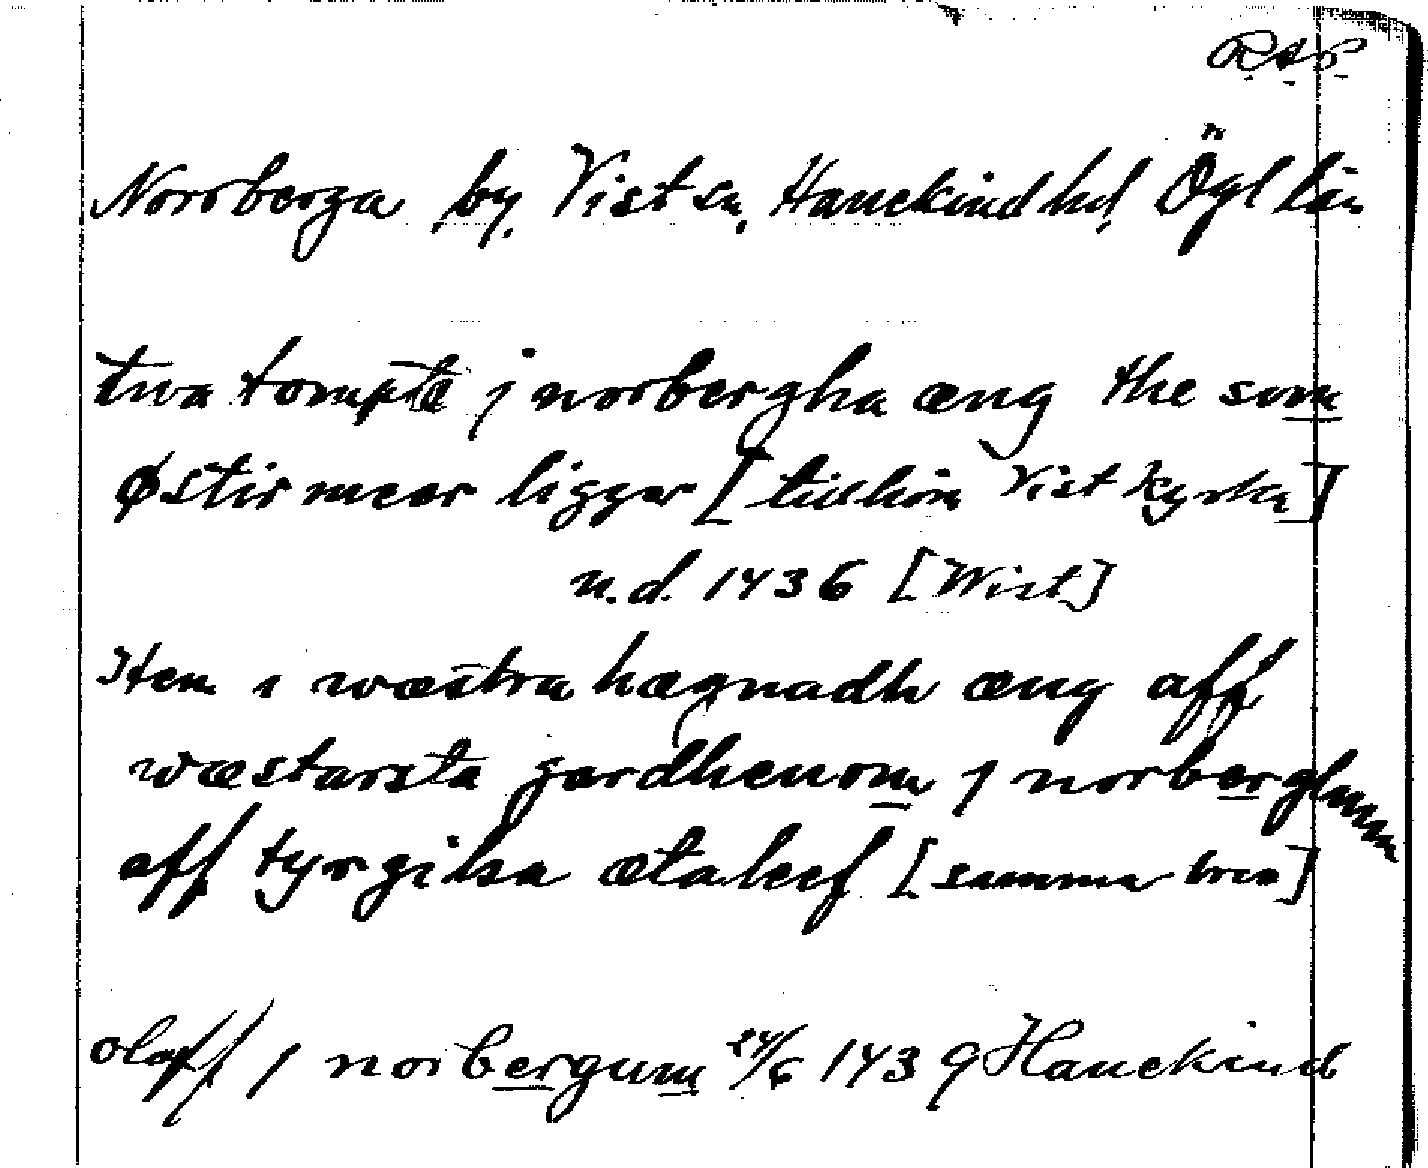 R.A.P.
Norrberga by, Vist sn, Hanekind hd, Ögl län
twa tompte j norbergha æng the som
østir meer ligger [tillhöra Vist kyrka]
u.d. 1436 [Wist]
Item i wæstra hægnadh æng aff
wæstarsta gardhenom j norberghum
aff tyrgilsa ætaleef [samma brev]
olaff j norbergum 24/6 1439 Hanekind